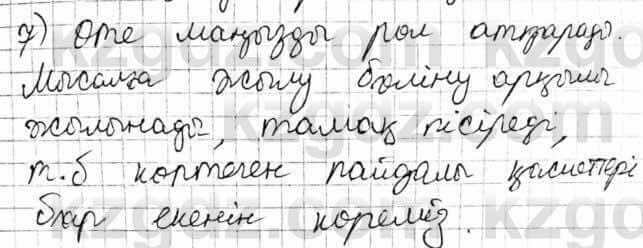 7) Өте маңызды рол атқарады.
Мысалға жылу бөліну арқылы
жылынады, тамақ пісіреді,
т.б көптеген пайдалы қасиеттері
бар екенін көреміз.